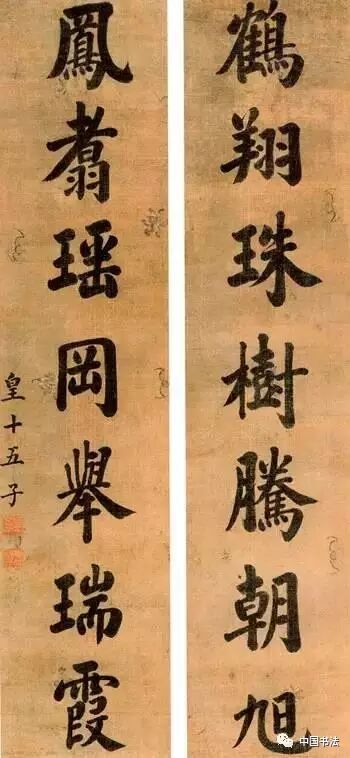 鶴翔珠樹騰朝旭
鳳翥瑶岡舉瑞霞
皇十五子
中国书法